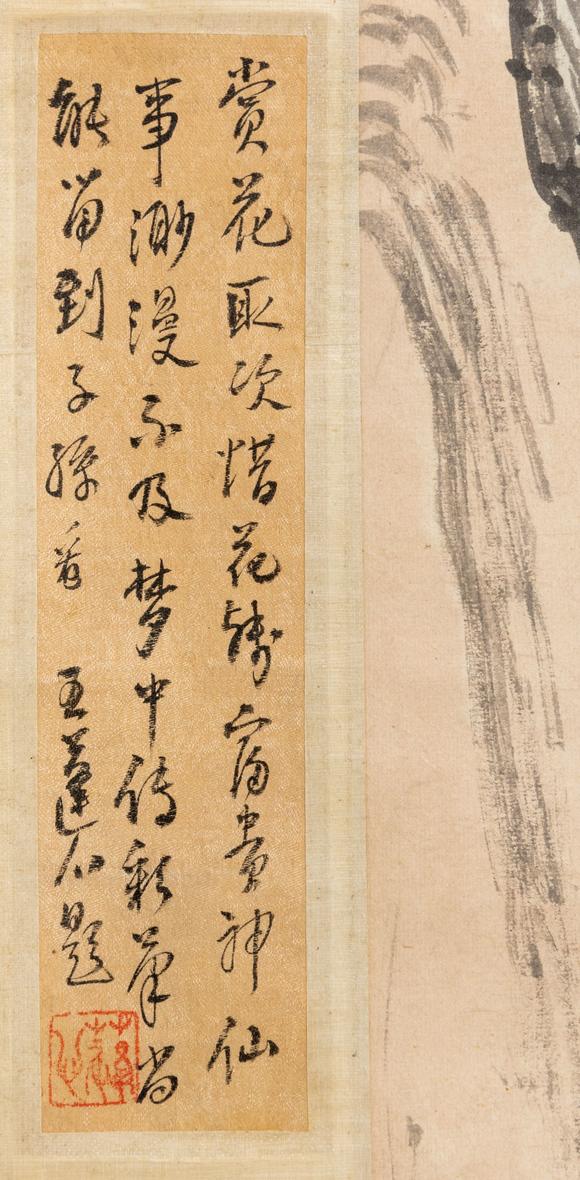 賞花取次惜花殘富貴神仙
事渺漫不及梦中傳彩筆尚
能留到子孫看 王蓬心題